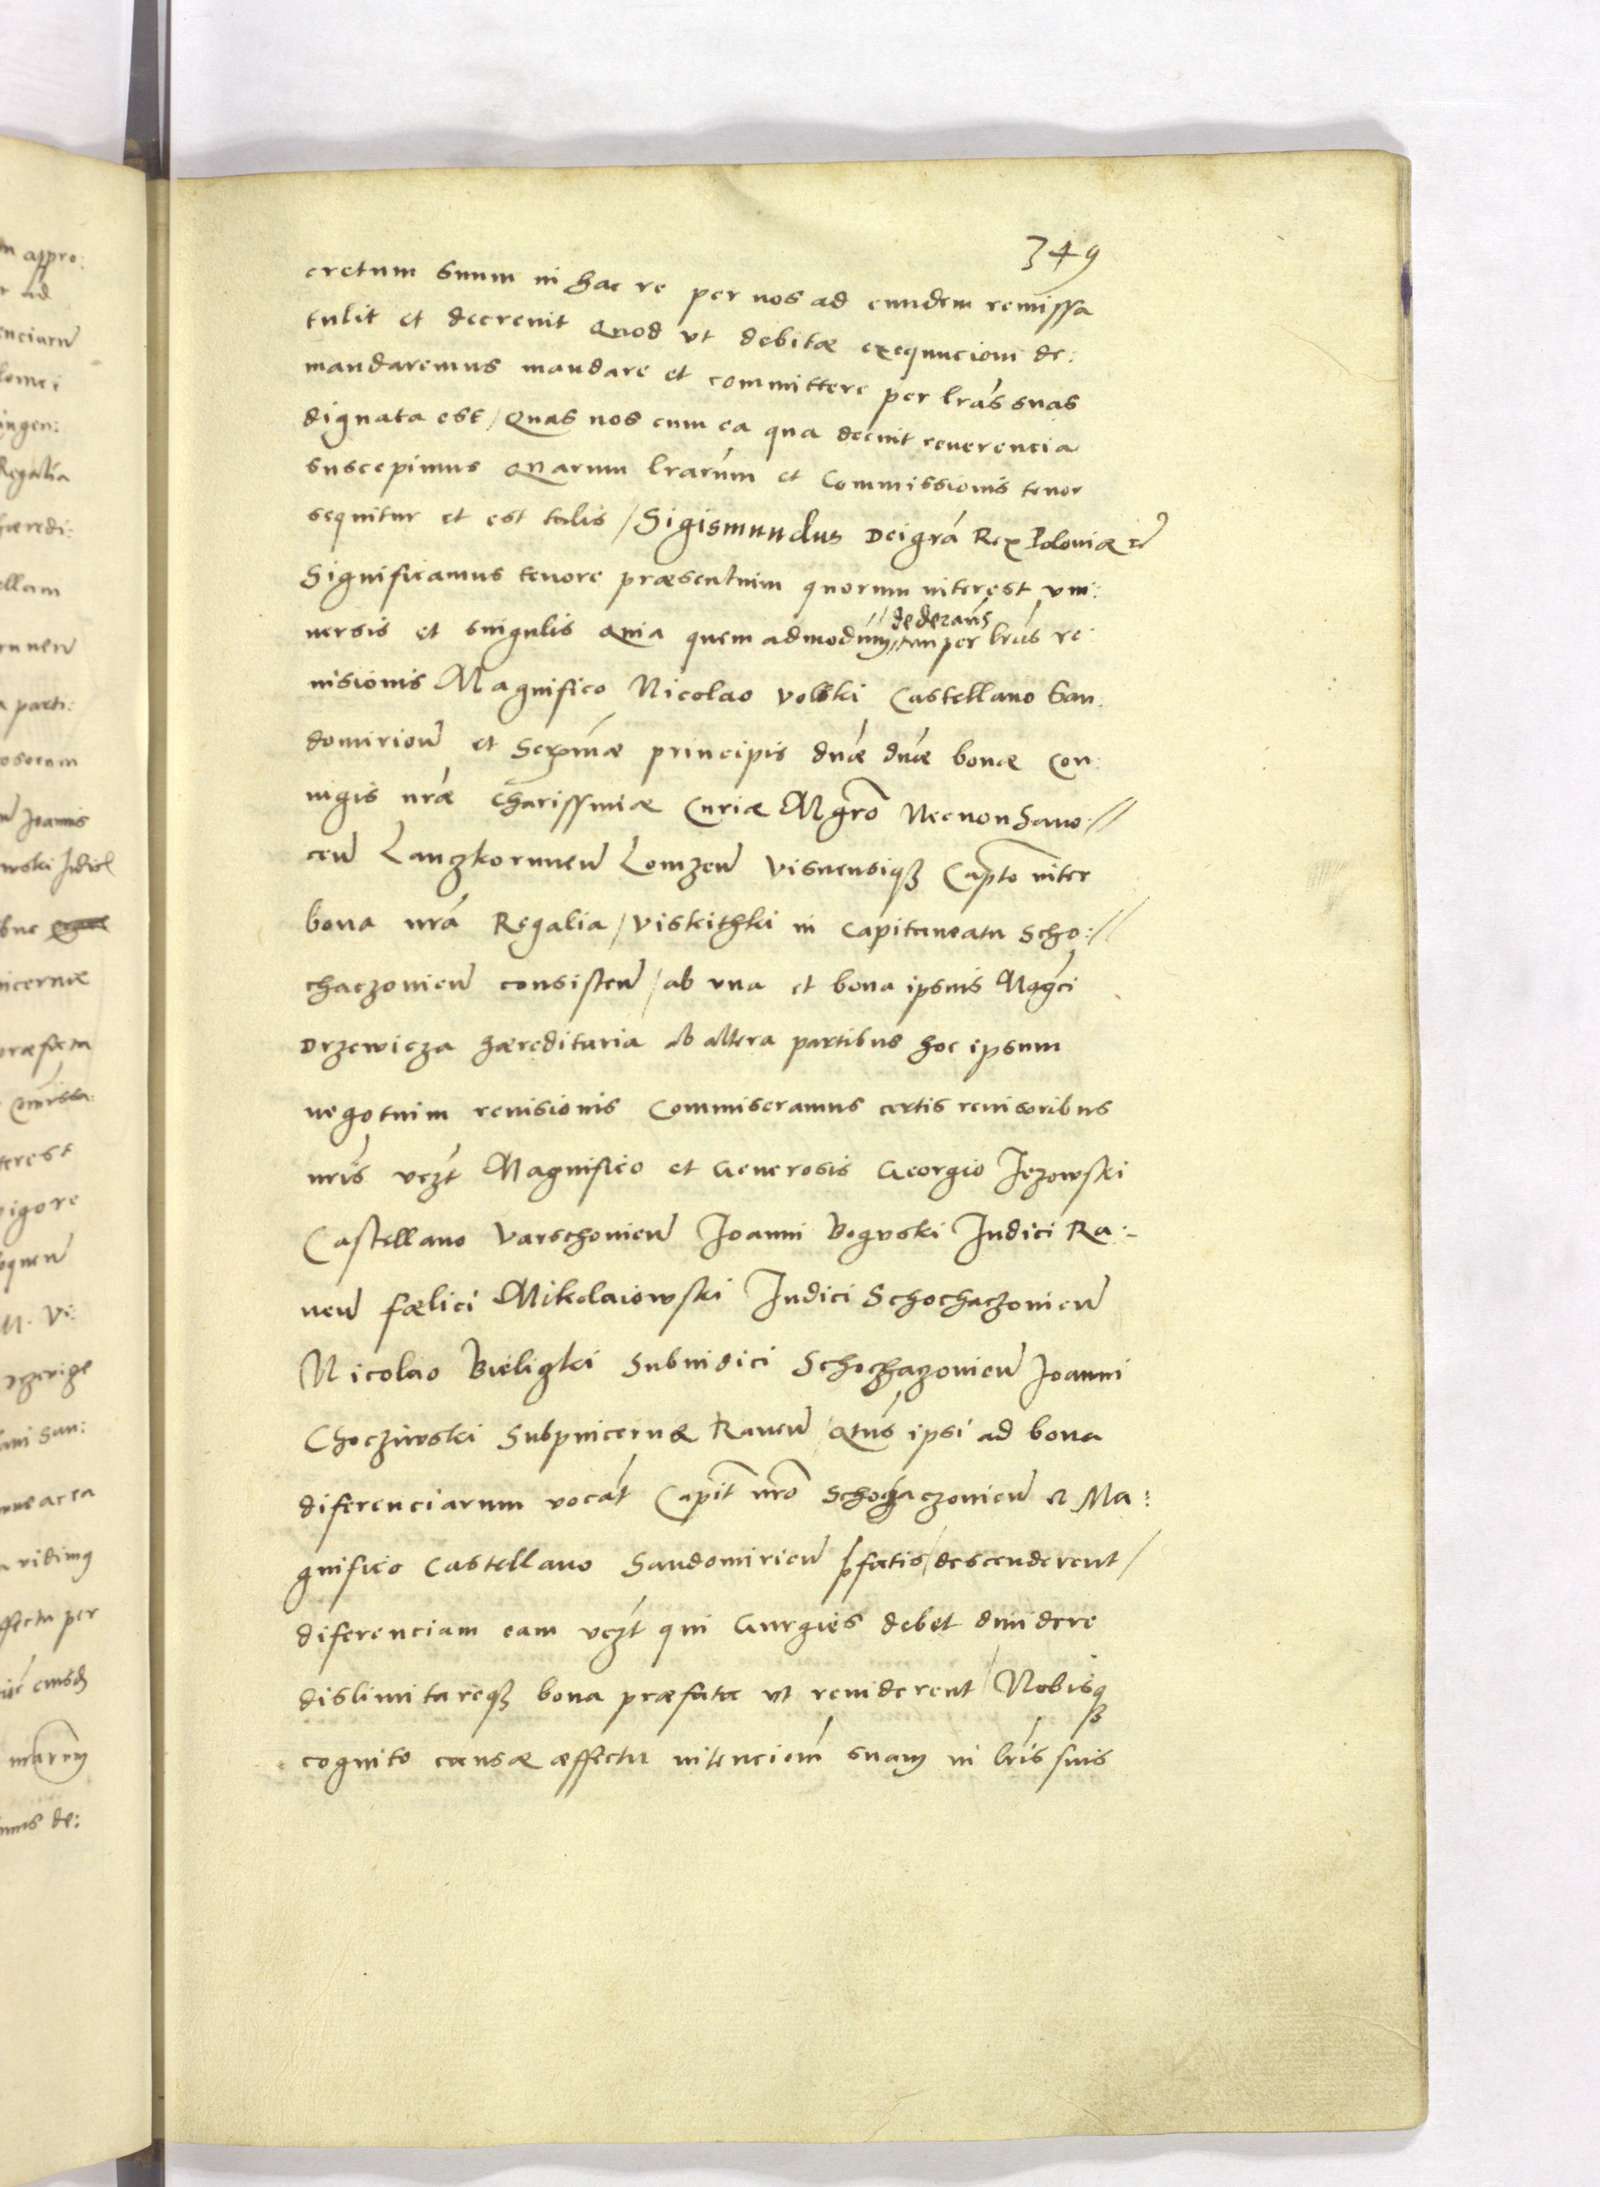 349
cretum suum in hac re per nos ad eundem remissa
tulit et decrevit Quod vt debitæ exequucioni de:
mandaremus mandare et committere per lras suas
dignata est / Quas nos cum ea qua decuit reuerencia
suscepimus Quarum lrarum et Commissionis tenor
sequitur et est talis / Sigismundus Dei gra Rex Poloniæ etc
Significamus tenore præsentium quorum interest vni:
uersis et singulis Quia quem admodum // dederamus // per lras re
uisionis Magnifico Nicolao Volski Castellano San:
domirien et Serxmæ principis dnæ dnæ bonæ Con:
iugis nræ Charissimæ Curiæ Mgro Necnon Sano://
cen Lanczkorunen Lomzen Visnensiq3 Capto inter
bona nra Regalia / Viskithki in Capitaneatu Scho://
chaczouien consisten / ab vna et bona ipsius Magci
Drzewicza hæreditaria ab altera partibus hoc ipsum
negotium reuisionis Commiseramus certis reuisoribus
nris vczt Magnifico et Generosis Georgio Jezowski
Castellano Varschouien Joanni Boguski Judici Ra:
uen fælici Mikolaiowski Judici Schochaczouien
Nicolao Bieliczki Subiudici Schochaczouien Joanni
Chocziwski Subpincernæ Rauen / Qtus ipsi ad bona
diferenciarum vocat Capit nro Schochaczouien et Ma:
gnifico Castellano Sandomirien pfatis / descenderent /
diferenciam eam vczt qui Gurgies debet diuidere
dislimitareq3 bona præfata vt reuiderent / Nobisq3
cognito causæ æffectu intencionem suam in lris suis